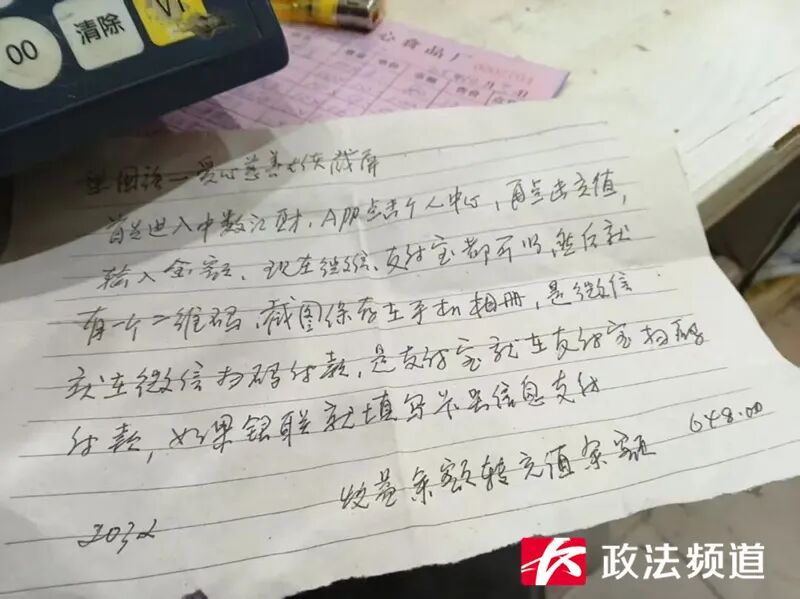 00
清除
心食品厂
爱心慈善大使截屏
首先进入中数汇财,APP点击个人中心,再点击充值,
输入金额,现在微信、支付宝都可以,然后就
有一个二维码,截图保存在手机相册,是微信
就在微信扫码付款,是支付宝就在支付宝扫码
付款,如果银联就填写卡号信息支付
收益余额转充值余额 648.00
政法频道